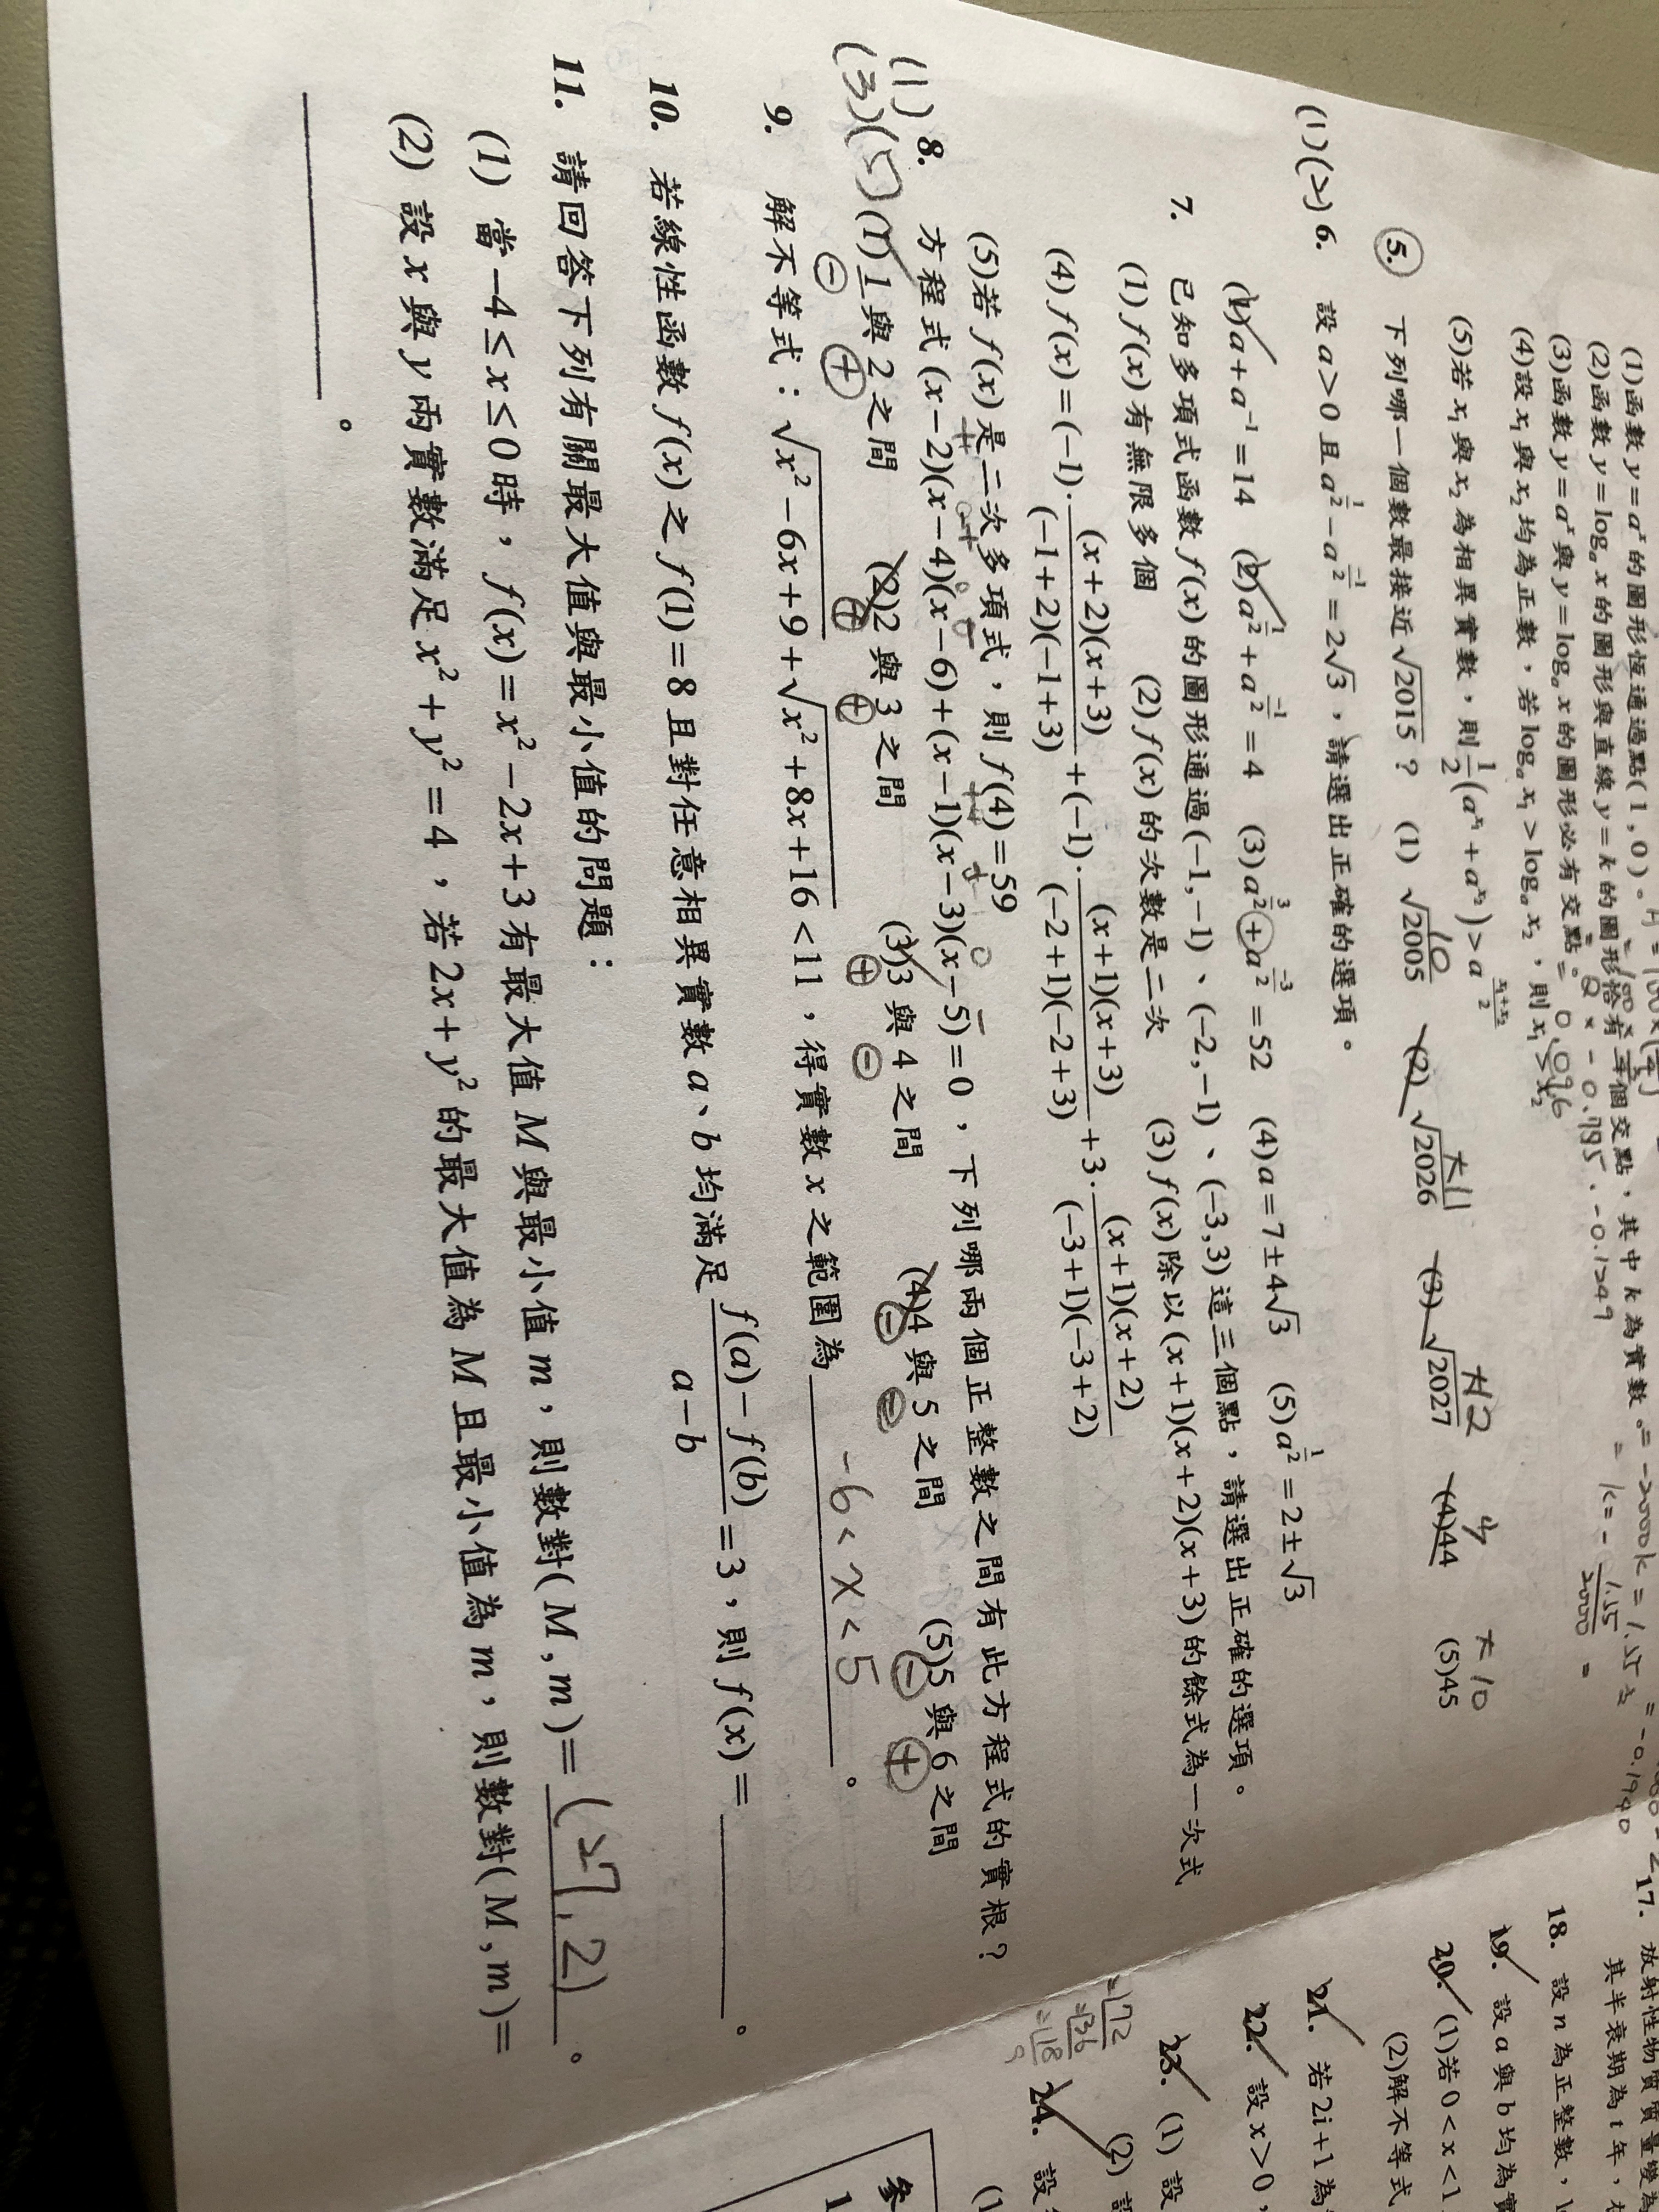 (1)函數 y=aˣ 的圖形恆通過點(1,0)。
(2)函數 y=logₐ x 的圖形與直線 y=k 的圖形恰有一個交點,其中 k 為實數。
(3)函數 y=aˣ 與 y=logₐ x 的圖形必有交點。
(4)設 x₁ 與 x₂ 均為正數,若 logₐ x₁ > logₐ x₂,則 x₁ > x₂
(5)若 x₁ 與 x₂ 為相異實數,則 1/2 (a^x₁ + a^x₂) > a^((x₁+x₂)/2)
5. 下列哪一個數最接近 √2015 ? (1) √2005 (2) √2026 (3) √2027 (4)44 (5)45
(1)(2) 6. 設 a>0 且 a^(1/2) − a^(−1/2) = 2√3,請選出正確的選項。
(1) a+a⁻¹=14 (2) a^(1/2)+a^(−1/2)=4 (3) a^(3/2)+a^(−3/2)=52 (4) a=7±4√3 (5) a^(1/2)=2±√3
7. 已知多項式函數 f(x) 的圖形通過(−1,−1)、(−2,−1)、(−3,3)這三個點,請選出正確的選項。
(1) f(x) 有無限多個 (2) f(x) 的次數是二次 (3) f(x) 除以 (x+1)(x+2)(x+3) 的餘式為一次式
(4) f(x)=(−1)·(x+2)(x+3)/(−1+2)(−1+3) + (−1)·(x+1)(x+3)/(−2+1)(−2+3) + 3·(x+1)(x+2)/(−3+1)(−3+2)
(5)若 f(x) 是二次多項式,則 f(4)=59
(1)(3)(5) 8. 方程式 (x−2)(x−4)(x−6)+(x−1)(x−3)(x−5)=0,下列哪兩個正整數之間有此方程式的實根?
(1)1 與 2 之間 (2)2 與 3 之間 (3)3 與 4 之間 (4)4 與 5 之間 (5)5 與 6 之間
9. 解不等式:√(x²−6x+9) + √(x²+8x+16) < 11,得實數 x 之範圍為 −6 < x < 5。
10. 若線性函數 f(x) 之 f(1)=8 且對任意相異實數 a、b 均滿足 (f(a)−f(b))/(a−b) = 3,則 f(x)=____。
11. 請回答下列有關最大值與最小值的問題:
(1) 當 −4≤x≤0 時,f(x)=x²−2x+3 有最大值 M 與最小值 m,則數對(M,m)= (27,2)。
(2) 設 x 與 y 兩實數滿足 x²+y²=4,若 2x+y² 的最大值為 M 且最小值為 m,則數對(M,m)=
____。
17. 放射性物質質量變為
其半衰期為 t 年,
18. 設 n 為正整數,
19. 設 a 與 b 均為實
20. (1)若 0<x<1
(2)解不等式
21. 若 2i+1 為
22. 設 x>0,
23. (1) 設
(2)
24. 設
參